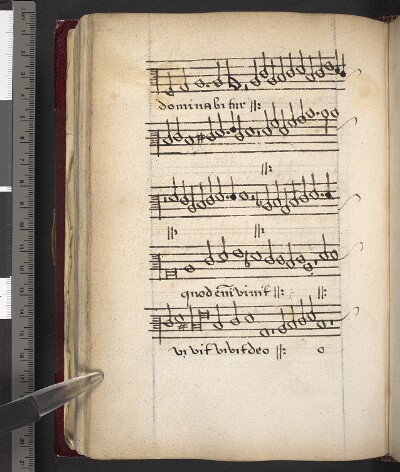 dominabitur :||:
:||:
:||: :||:
quod em̅ vivit :||: :||:
vivit vivit deo :||: